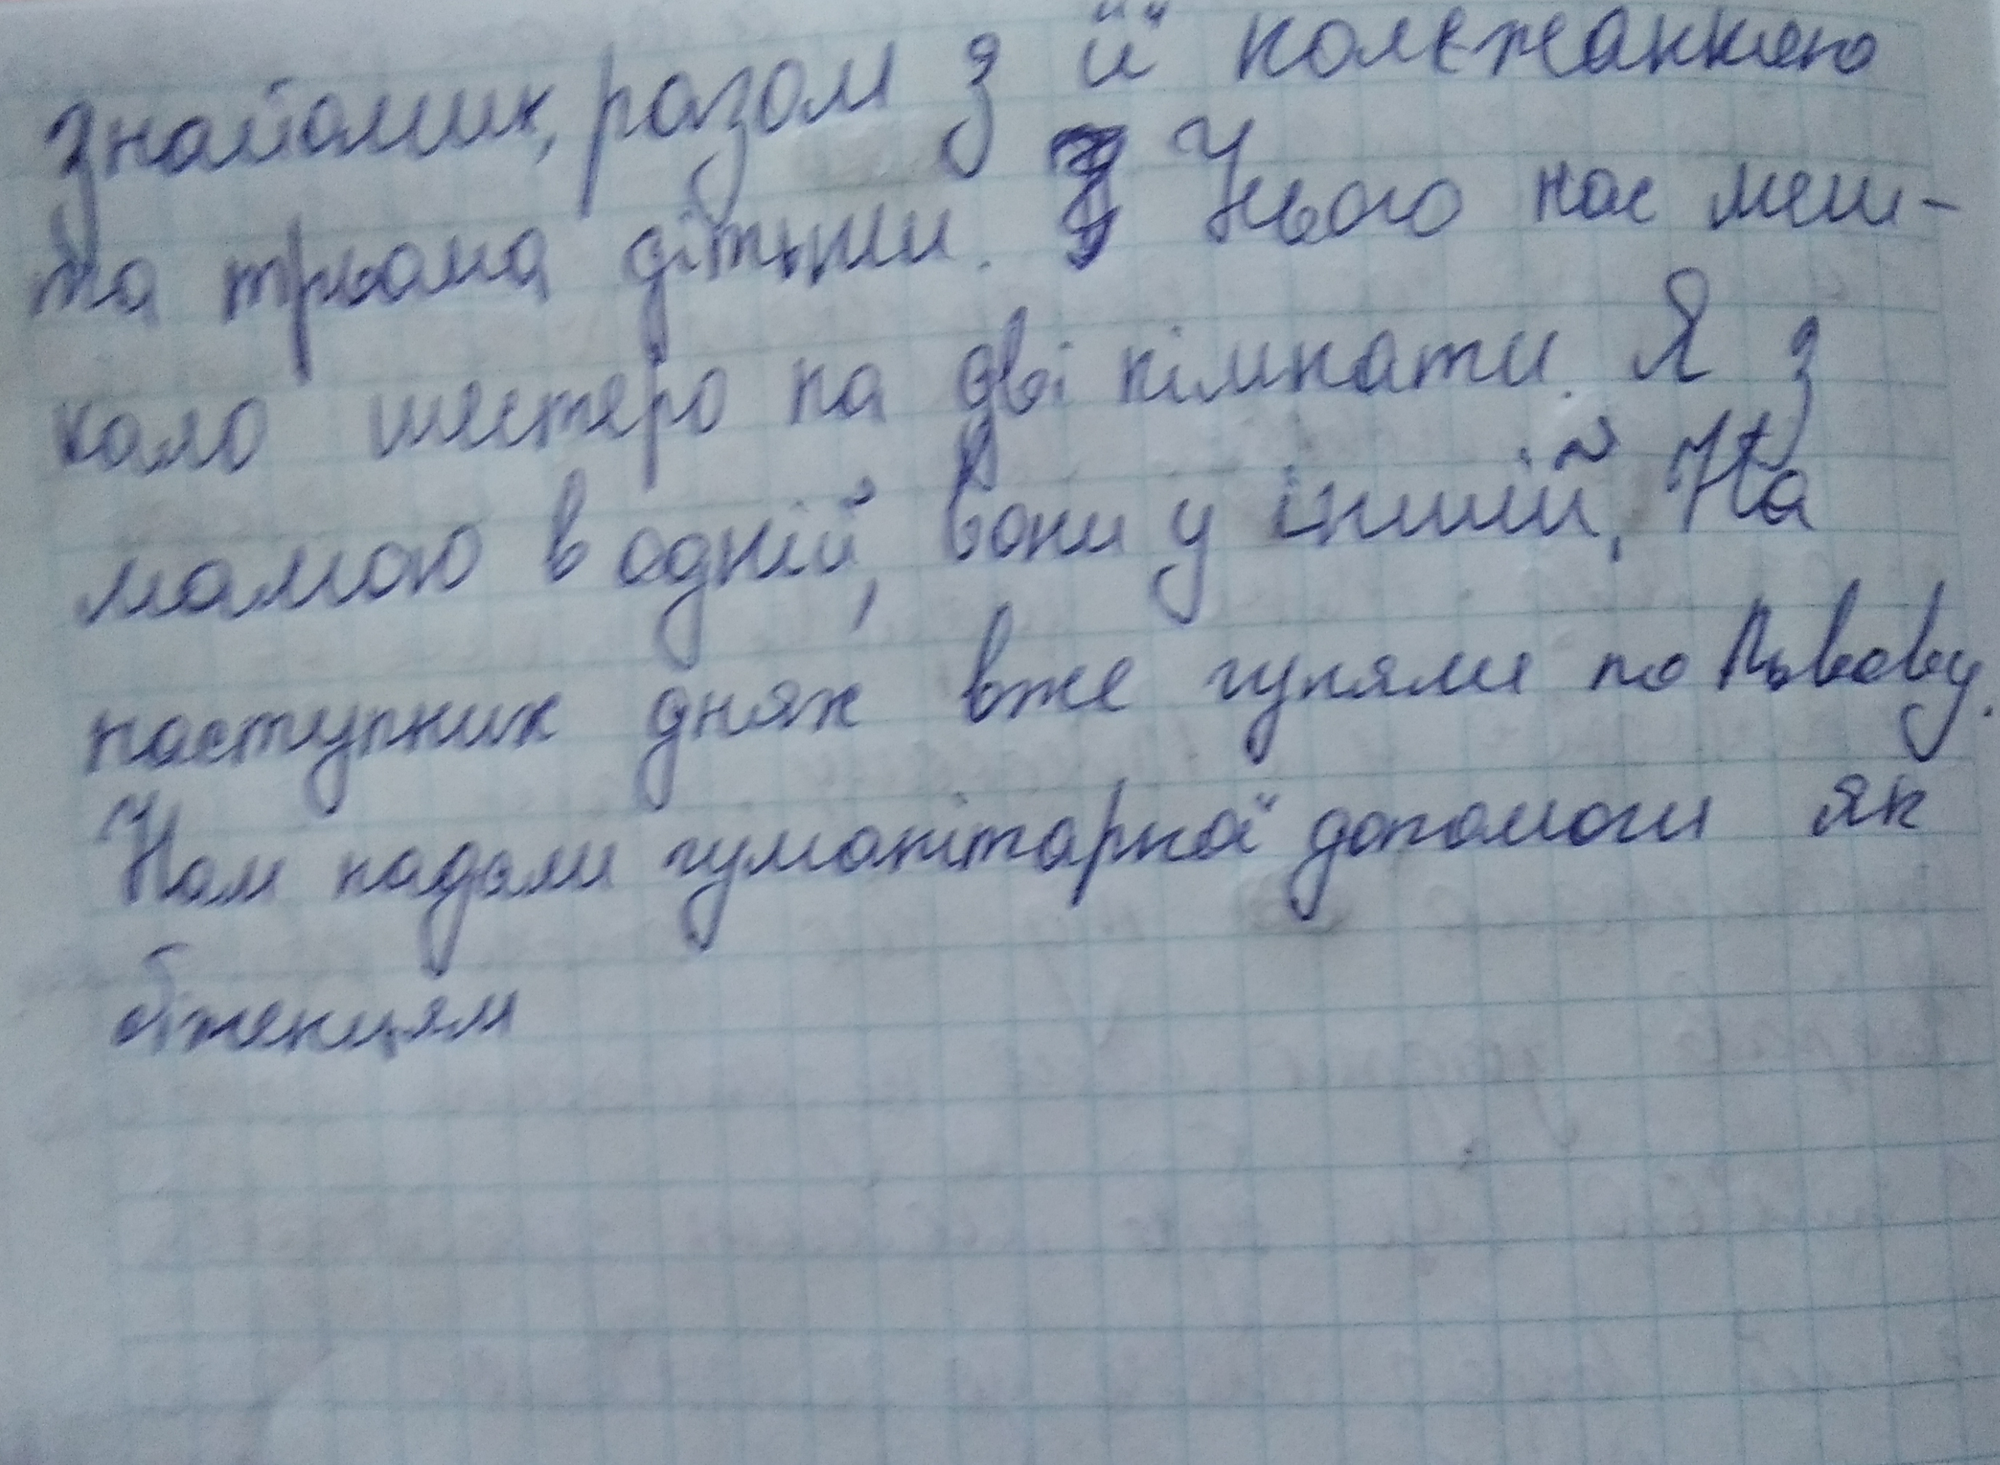 знайомих, разом з її колежанкою
та трьома дітьми. У нього нас меш-
кало шестеро на дві кімнати. Я з
мамою в одній, вони у іншій. На
наступних днях вже гуляли по Львову.
Нам надали гуманітарної допомоги як
біженцям